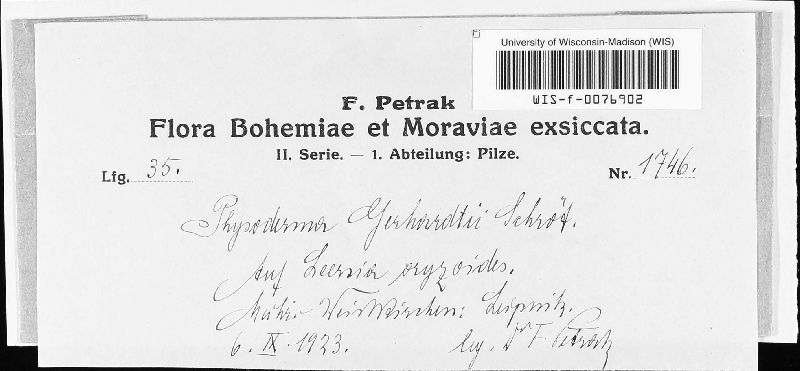 University of Wisconsin-Madison (WIS)
WIS-f-0076902
F. Petrak
Flora Bohemiae et Moraviae exsiccata.
II. Serie. — 1. Abteilung: Pilze.
Lfg. 35.
Nr. 1746.
Physoderma Gerhardtii Schröt.
Auf Leersia oryzoides.
Mähr.-Weisskirchen: Leipnik.
6. IX. 1923.
leg. Dr F. Petrak